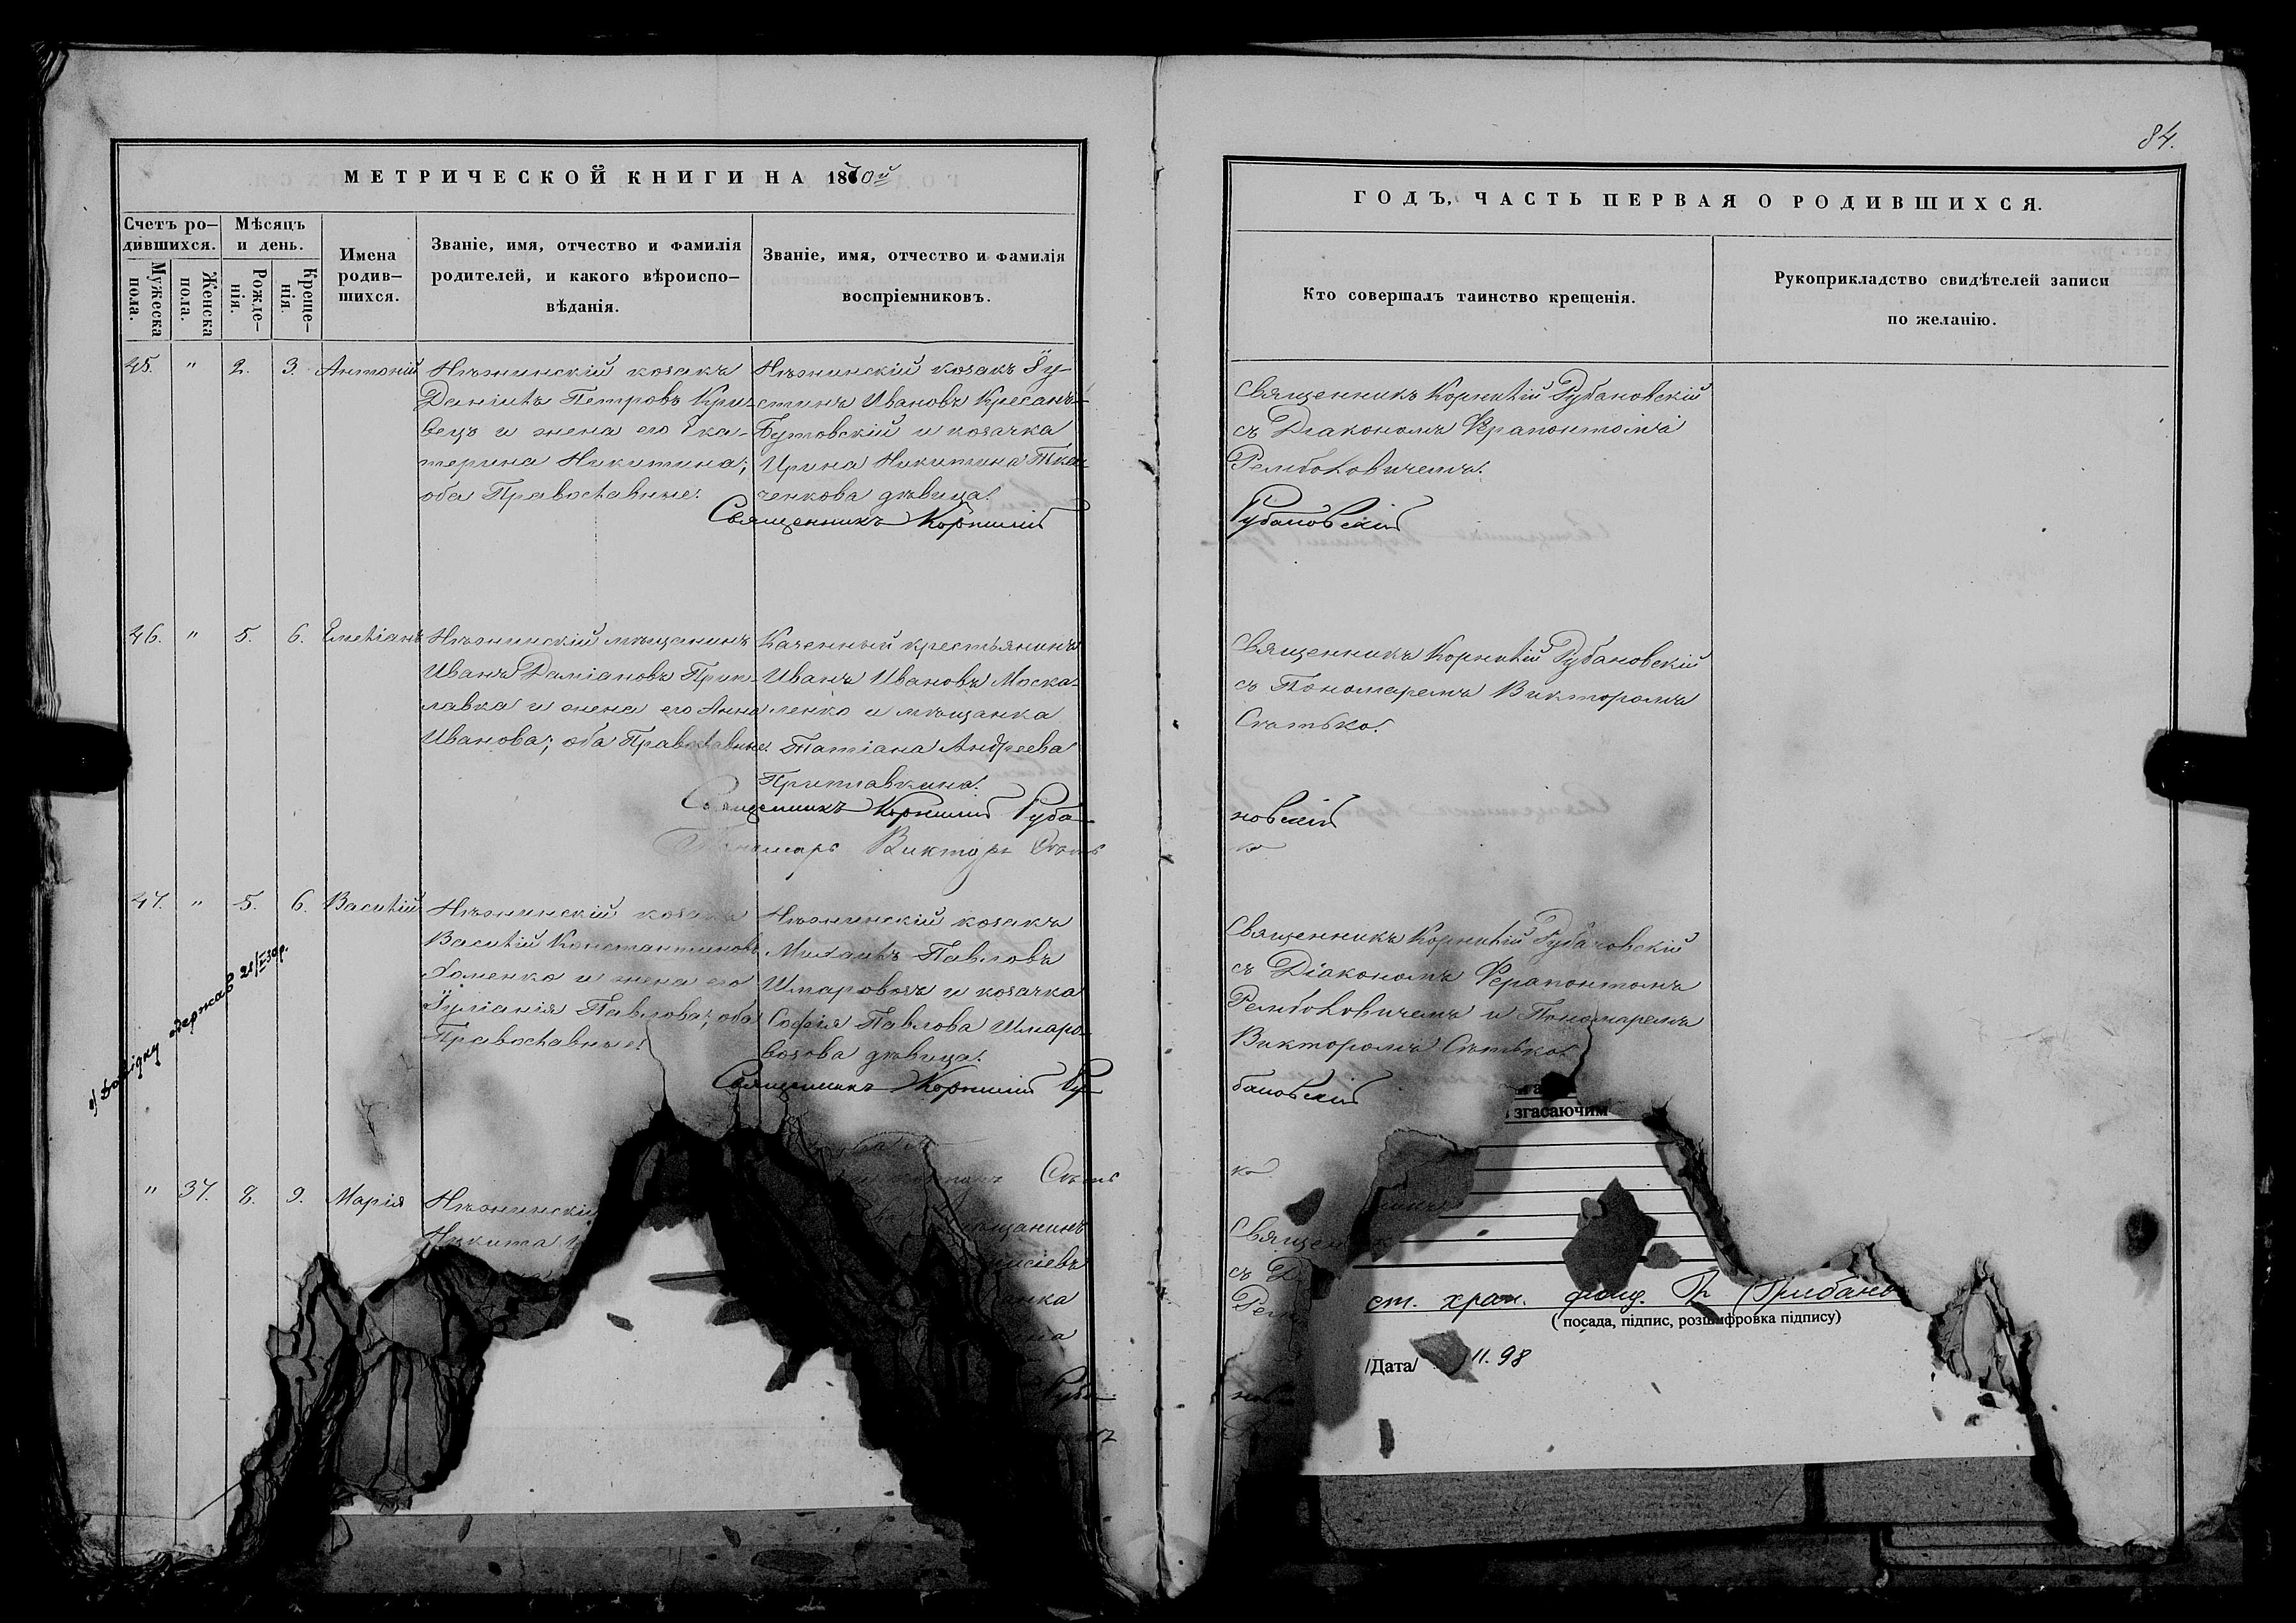 84.
МЕТРИЧЕСКОЙ КНИГИ НА 1870й
Счетъ ро-
дившихся.
Мужеска
пола.
Женска
пола.
Мѣсяцъ
и день.
Рожде-
нія.
Креще-
нія.
Имена
родив-
шихся.
Званіе, имя, отчество и фамилія
родителей, и какого вѣроиспо-
вѣданія.
Званіе, имя, отчество и фамилія
воспріемниковъ.
45. " 2. 3. Антоній
Нѣжинскій козакъ
Даніилъ Петровъ Кри-
вецъ и жена его Ека-
терина Никитина;
оба Православные.
Нѣжинскій козакъ Іу-
стинъ Ивановъ
Бутовскій и козачка
Ирина Никитина
ченкова дѣвица.
Священникъ Корнилій
46. " 5. 6. Емеліанъ
Нѣжинскій мѣщанинъ
Иванъ Даміановъ
лавка и жена его Анна
Иванова; оба Православные.
Казенный крестьянинъ
Иванъ Ивановъ Моска-
ленко и мѣщанка
Татіана Андреева
Священникъ Корнилій Руба-
Пономарь Викторъ
47. " 5. 6. Василій
Нѣжинскій козакъ
Василій Константиновъ
Хоменко и жена его
Іуліанія Павлова; оба
Православные.
Нѣжинскій козакъ
Михаилъ Павловъ
Шмаровозъ и козачка
Софія Павлова Шмаро-
возова дѣвица.
Священникъ Корнилій Ру-
одержав
" 37. 8. 9. Марія
Нѣжинскій
Никита
Руба-
ГОДЪ, ЧАСТЬ ПЕРВАЯ О РОДИВШИХСЯ.
Кто совершалъ таинство крещенія.
Рукоприкладство свидѣтелей записи
по желанію.
Священникъ Корнилій Рубановскій
съ Діакономъ Ферапонтомъ
Ремболовичемъ.
Рубановскій
Священникъ Корнилій Рубановскій
съ Пономаремъ Викторомъ
новскій
ко
Священникъ Корнилій Рубановскій
съ Діакономъ Ферапонтомъ
Ремболовичемъ и Пономаремъ
Викторомъ
бановскій
згасаючим
ко
Священ
съ
ст. хран. фонд.
(посада, підпис, розшифровка підпису)
/Дата/ 11.98